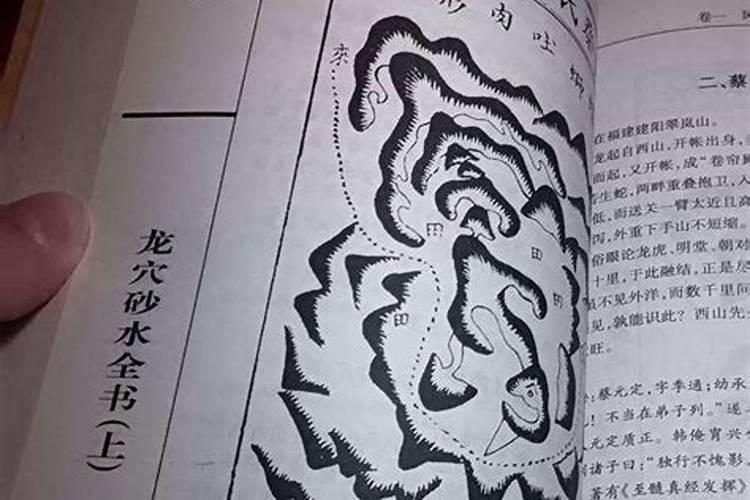 龙穴砂水全书(上)
肉吐
来
田
田
田
田
卷一
二、蔡
在福建建阳翠岚山。
龙起自西山,开帐出身,
而起,又开帐,成“卷帘
生蛇,两畔重叠抱卫,人
低,而送关一臂太近且高
泻,外重下手山不短缩。
俗眼论龙虎、明堂、朝对
十里,于此融结,正是尽
不见外洋,而数千里间
见,孰能识此?西山先
旺。
:蔡元定,字季通;幼承
!不当在弟子列。”遂
元定质正。韩侂胄兴
诸子曰:“独行不愧影,
著有《玉髓真经发挥》